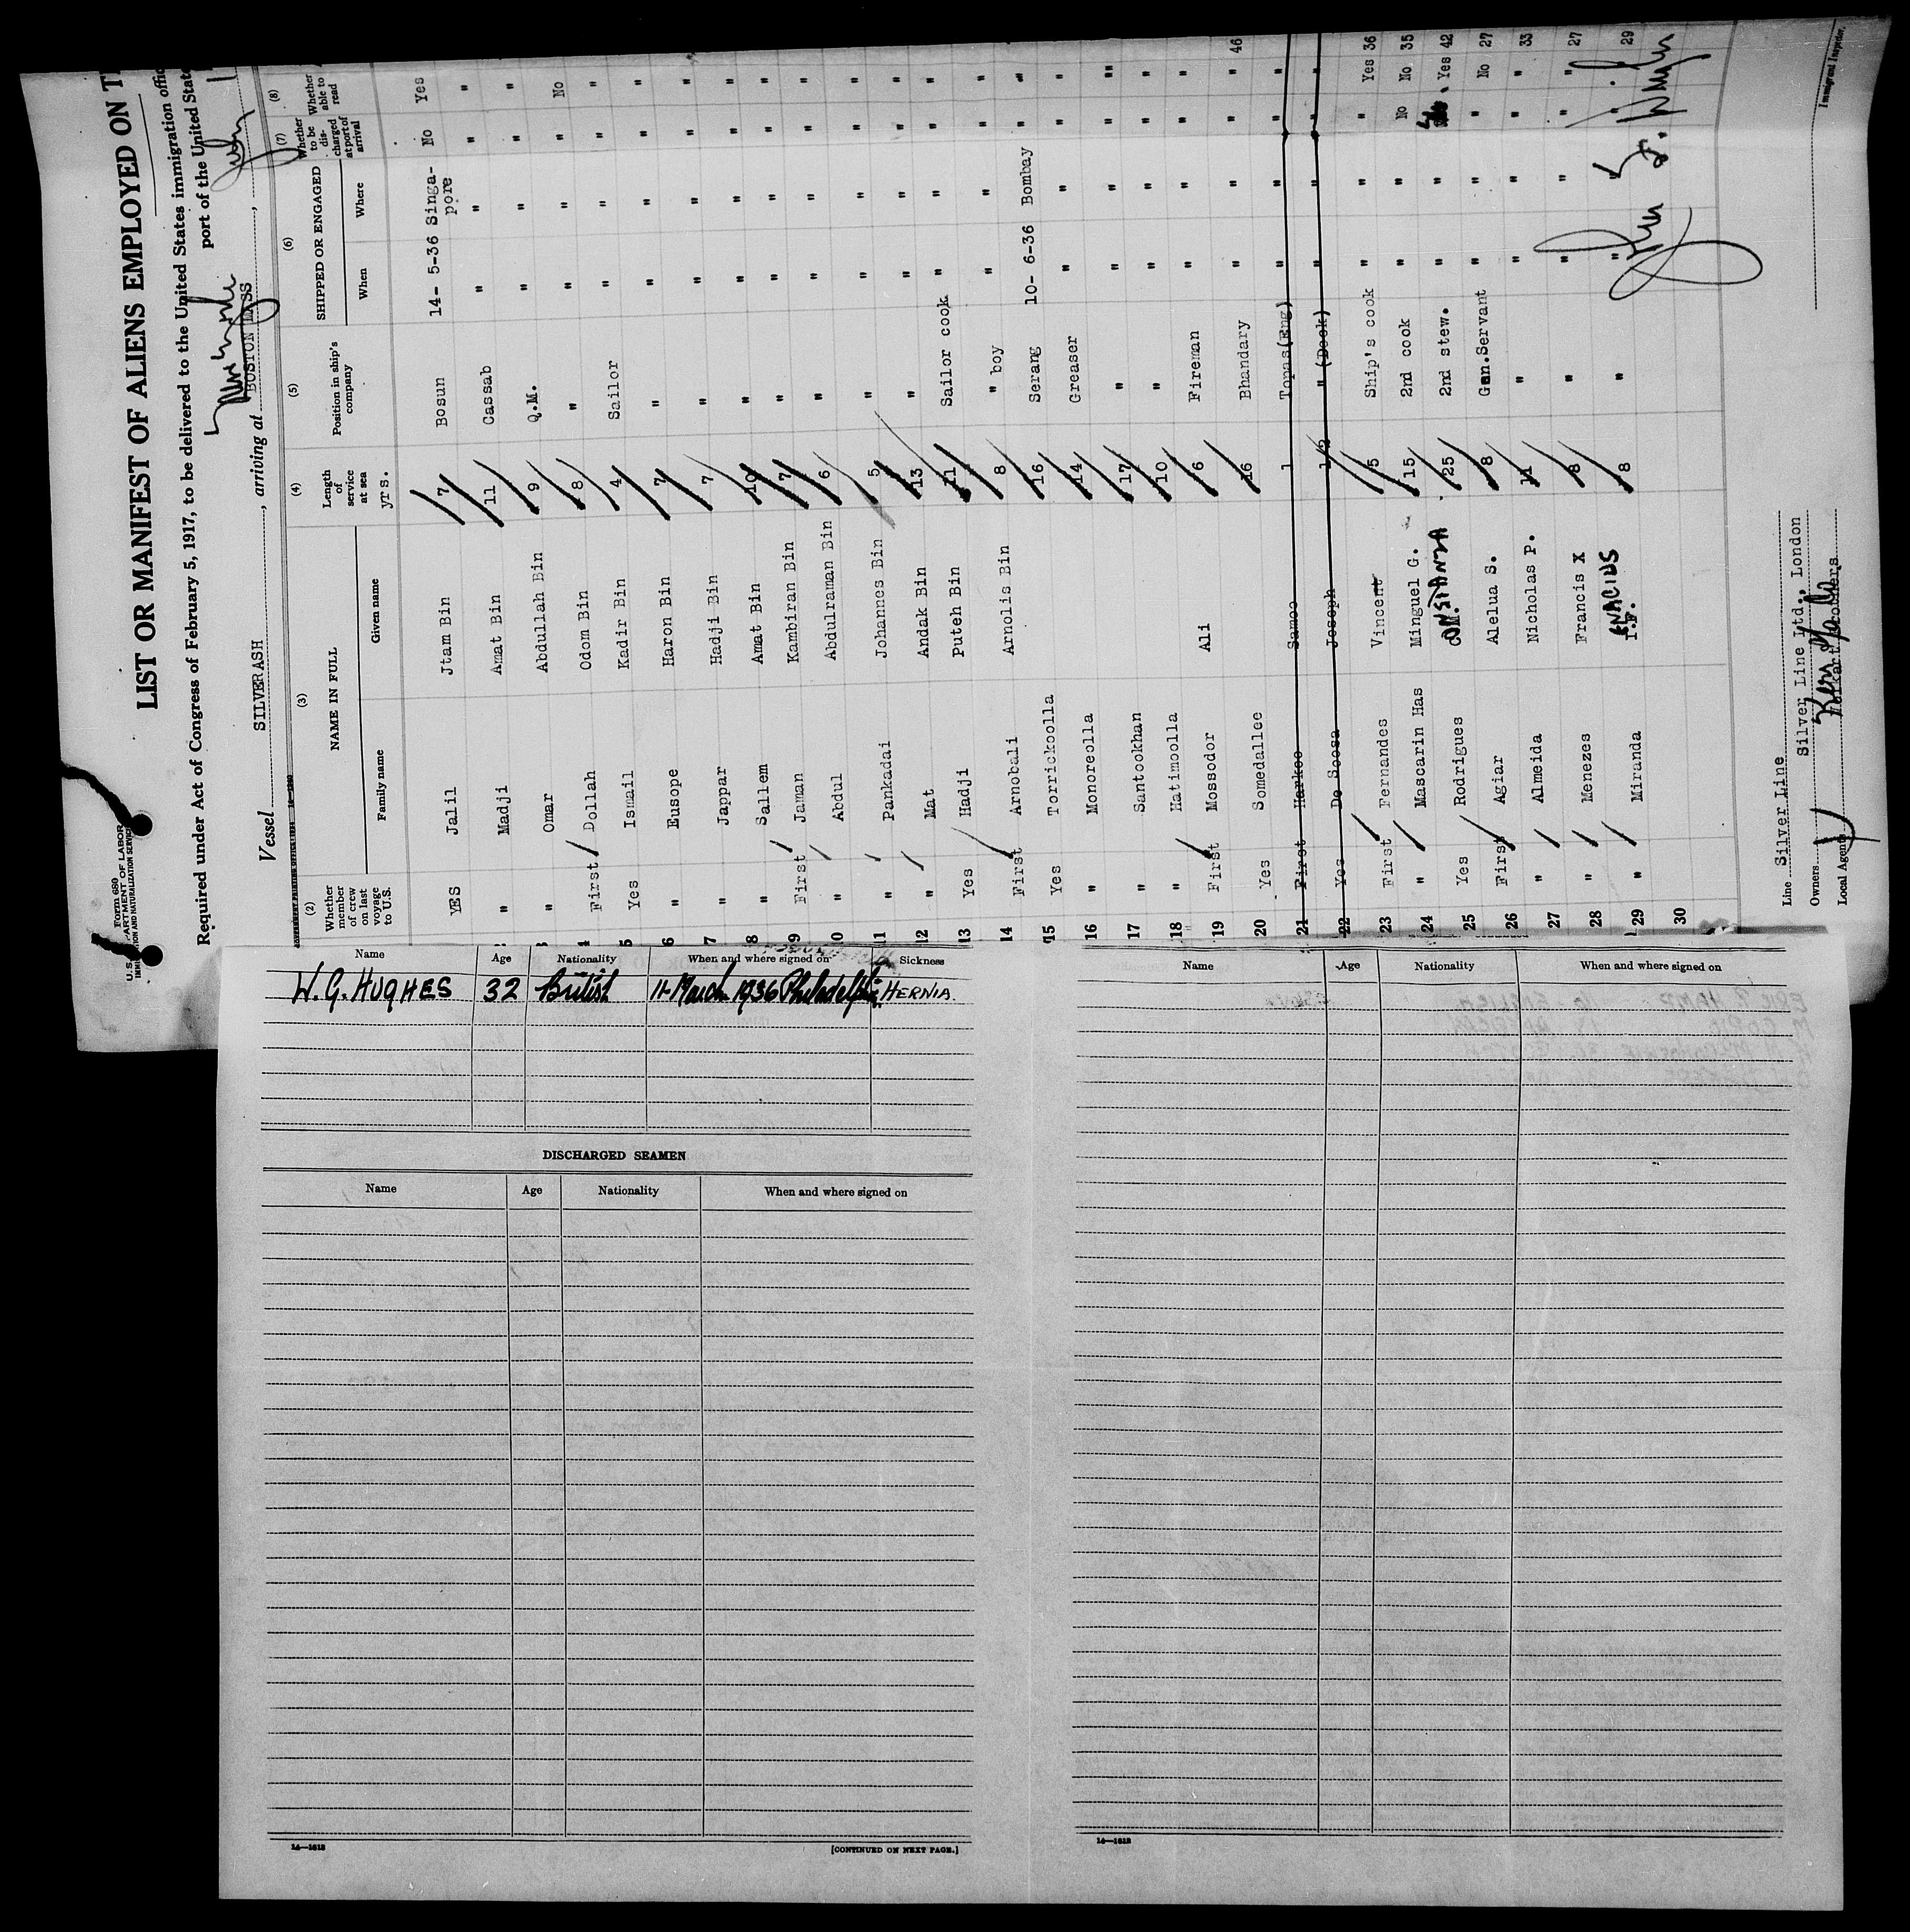 Form 680
U.S. DEPARTMENT OF LABOR
IMMIGRATION AND NATURALIZATION SERVICE
LIST OR MANIFEST OF ALIENS EMPLOYED ON
Required under Act of Congress of February 5, 1917, to be delivered to the United States immigration
port of the United
Vessel SILVERASH , arriving at BOSTON MASS ,
(2) (3) (4) (5) (6) (7) (8)
Whether member of crew on last voyage to U.S.
NAME IN FULL
Family name Given name
Length of service at sea
yrs.
Position in ship's company
SHIPPED OR ENGAGED
When Where
Whether to be discharged at port of arrival
Whether able to read
YES Jalil Jtam Bin 7 Bosun 14- 5-36 Singapore No Yes
" Madji Amat Bin 11 Cassab " " " "
" Omar Abdullah Bin 9 Q.M. " " " "
4 First Dollah Odom Bin 8 " " " " No
5 Yes Ismail Kadir Bin 4 Sailor " " " "
6 " Eusope Haron Bin 7 " " " " "
7 " Jappar Hadji Bin 7 " " " " "
8 " Sallem Amat Bin 10 " " " " "
9 First Jaman Kambiran Bin 7 " " " " "
10 " Abdul Abdulraman Bin 6 " " " " "
11 " Pankadai Johannes Bin 5 " " " " "
12 " Mat Andak Bin 13 " " " " "
13 Yes Hadji Puteh Bin 11 Sailor cook " " " "
14 First Arnobali Arnolis Bin 8 " boy " " " "
15 Yes Torrickoolla 16 Serang 10- 6-36 Bombay " "
16 " Monoreolla 14 Greaser " " " "
17 " Santookhan 17 " " " " "
18 " Hatimoolla 10 " " " " "
19 First Mossodor Ali 6 Fireman " " " "
20 Yes Somedallee 16 Bhandary " " " " 46
21 First Harkoo Samoo 1 Topas(Eng) " " " "
22 Yes De Soosa Joseph 1/2 " (Deck) " " " "
23 First Fernandes Vincent 5 Ship's cook " " " Yes 36
24 " Mascarin Has Minguel G. 15 2nd cook " " No No 35
25 Yes Rodrigues CONSTANZA 25 2nd stew. " " Yes 42
26 First Agiar Alelua S. 8 Gen.Servant " " " No 27
27 " Almeida Nicholas P. 11 " " " " " 33
28 " Menezes Francis X 8 " " " " " 27
29 " Miranda ENACIUS 8 " " " 29
30
Line Silver Line
Owners Silver Line Ltd., London
Local Agents
Immigrant Inspector.
Name Age Nationality When and where signed on Sickness
W. G. HUGHES 32 British 11 March 1936 Philadelphia HERNIA.
DISCHARGED SEAMEN
Name Age Nationality When and where signed on
14—1613 [CONTINUED ON NEXT PAGE.]
Name Age Nationality When and where signed on
14—1613